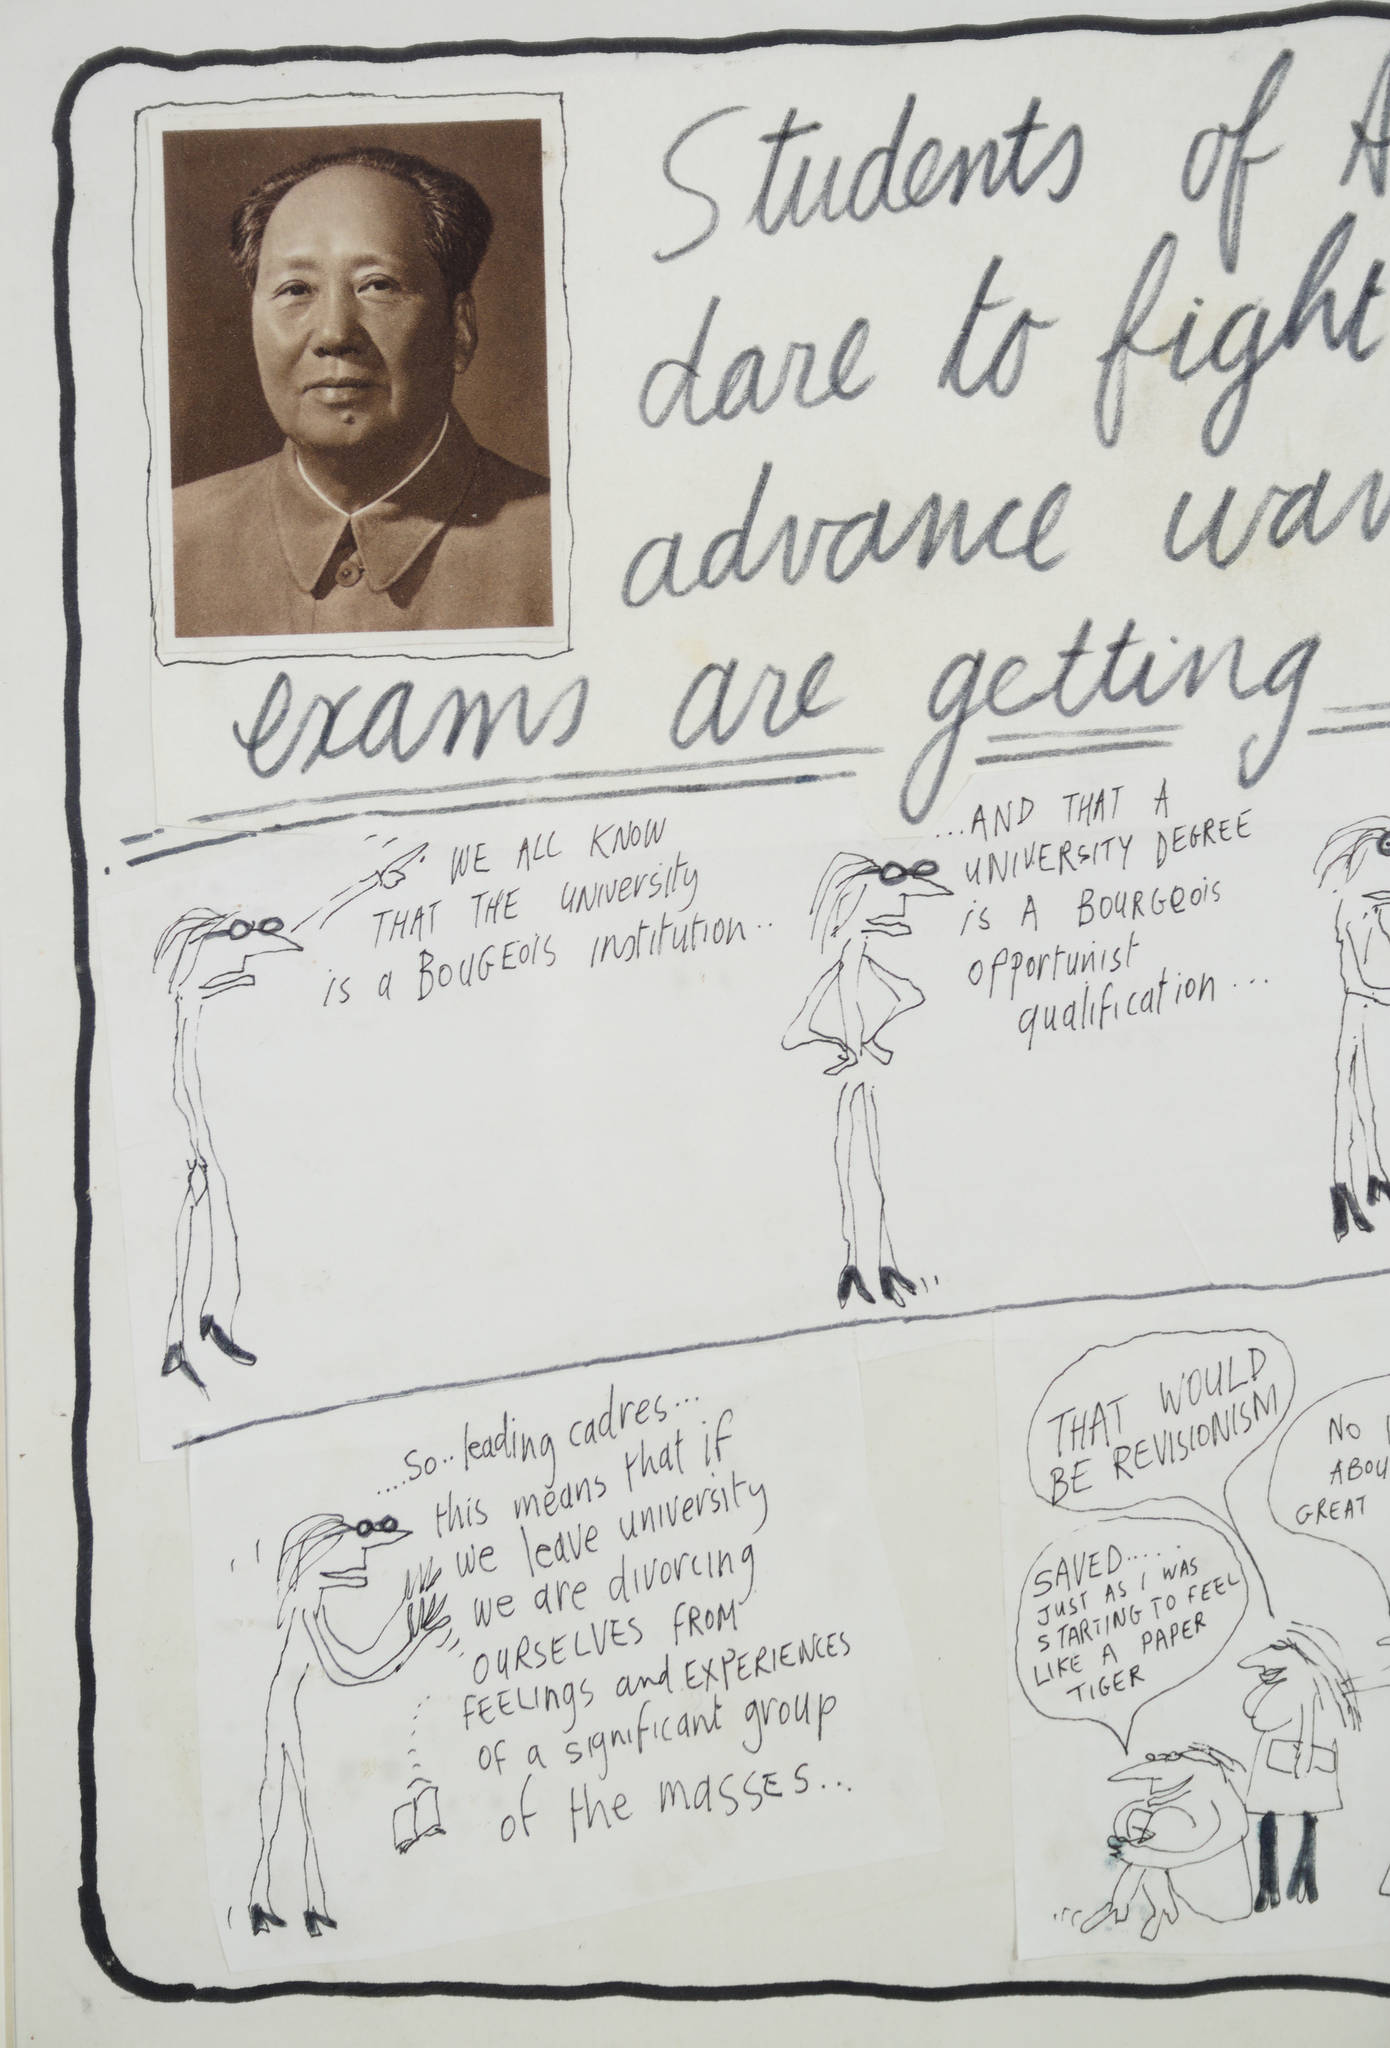 Students of
dare to fight
advance
exams are getting
WE ALL KNOW
THAT THE UNIVERSITY
is a BOUGEOIS institution..
...AND THAT A
UNIVERSITY DEGREE
is A BOURGEOIS
opportunist
qualification...
....So..leading cadres...
this means that if
we leave university
we are divorcing
OURSELVES FROM
FEELINGS and EXPERIENCES
OF a significant group
of the masses...
THAT WOULD
BE REVISIONISM
NO
GREAT
SAVED.....
JUST AS I WAS
STARTING TO FEEL
LIKE A PAPER
TIGER